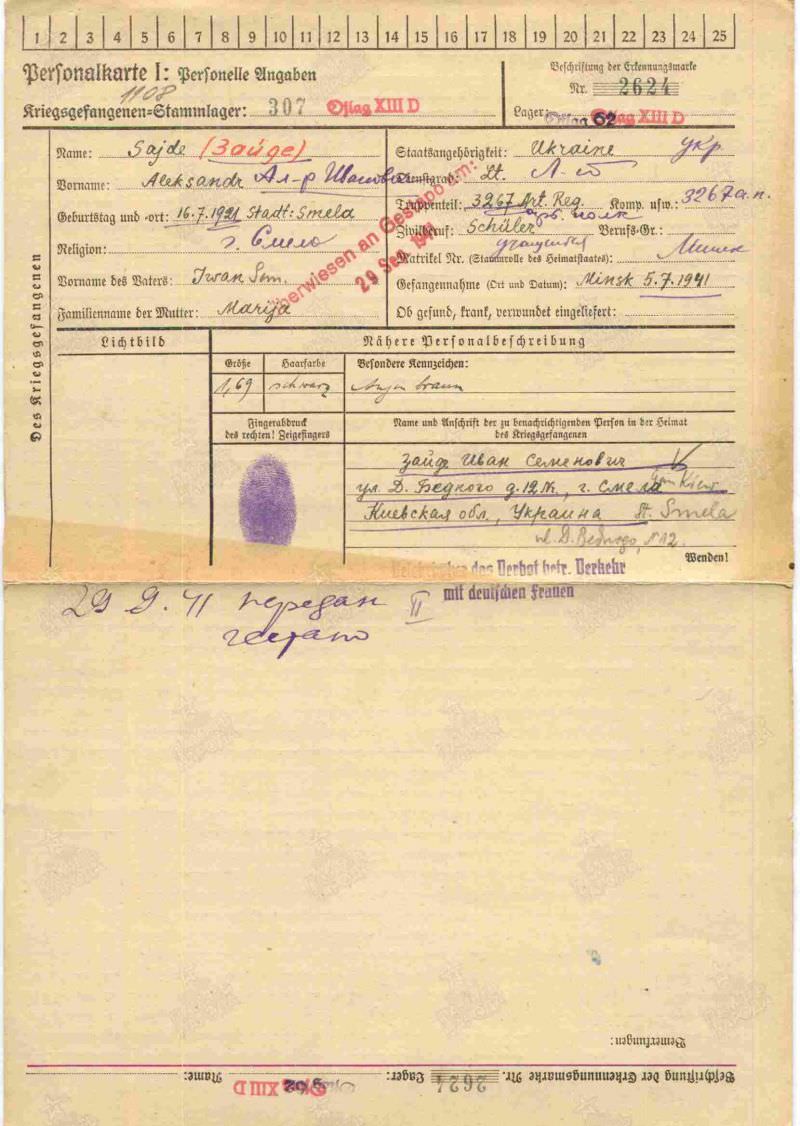 1 2 3 4 5 6 7 8 9 10 11 12 13 14 15 16 17 18 19 20 21 22 23 24 25
Personalkarte I: Personelle Angaben
1108
Kriegsgefangenen=Stammlager: 307 Oflag XIII D
Beschriftung der Erkennungsmarke
Nr. 2624
Lager: Oflag 62 Oflag XIII D
Des Kriegsgefangenen
Name: Sajde (Зайде)
Vorname: Aleksandr Ал-р Иванович
Geburtstag und -ort: 16.7.1921 Stadt: Smela
г. Смело
Religion:
Vorname des Vaters: Iwan Sem.
Familienname der Mutter: Marija
Überwiesen an Gestapo am:
29 Sep. 1941
Staatsangehörigkeit: Ukraine укр
Dienstgrad: Lt. Л-т
Truppenteil: 3267 Art. Reg. Komp. usw.: 3267 а.п.
арт. полк
Zivilberuf: Schüler Berufs-Gr.:
учащийся
Matrikel Nr. (Stammrolle des Heimatstaates): Минск
Gefangennahme (Ort und Datum): Minsk 5.7.1941
Ob gesund, krank, verwundet eingeliefert:
Lichtbild
Nähere Personalbeschreibung
Größe Haarfarbe Besondere Kennzeichen:
1,69 schwarz Augen braun
Fingerabdruck
des rechten! Zeigefingers
Name und Anschrift der zu benachrichtigenden Person in der Heimat
des Kriegsgefangenen
Зайде Иван Семенович
ул. Д. Бедного д. 12 г. Смела Kiew
Киевская обл., Украина St. Smela
ul. D. Bednogo, N 12.
Wenden!
das Verbot betr. Verkehr
mit deutschen Frauen
29 9. 41 передан II
гестапо
Bemerkungen:
Beschriftung der Erkennungsmarke Nr. 2624 Lager: Oflag 62 Oflag XIII D Name: